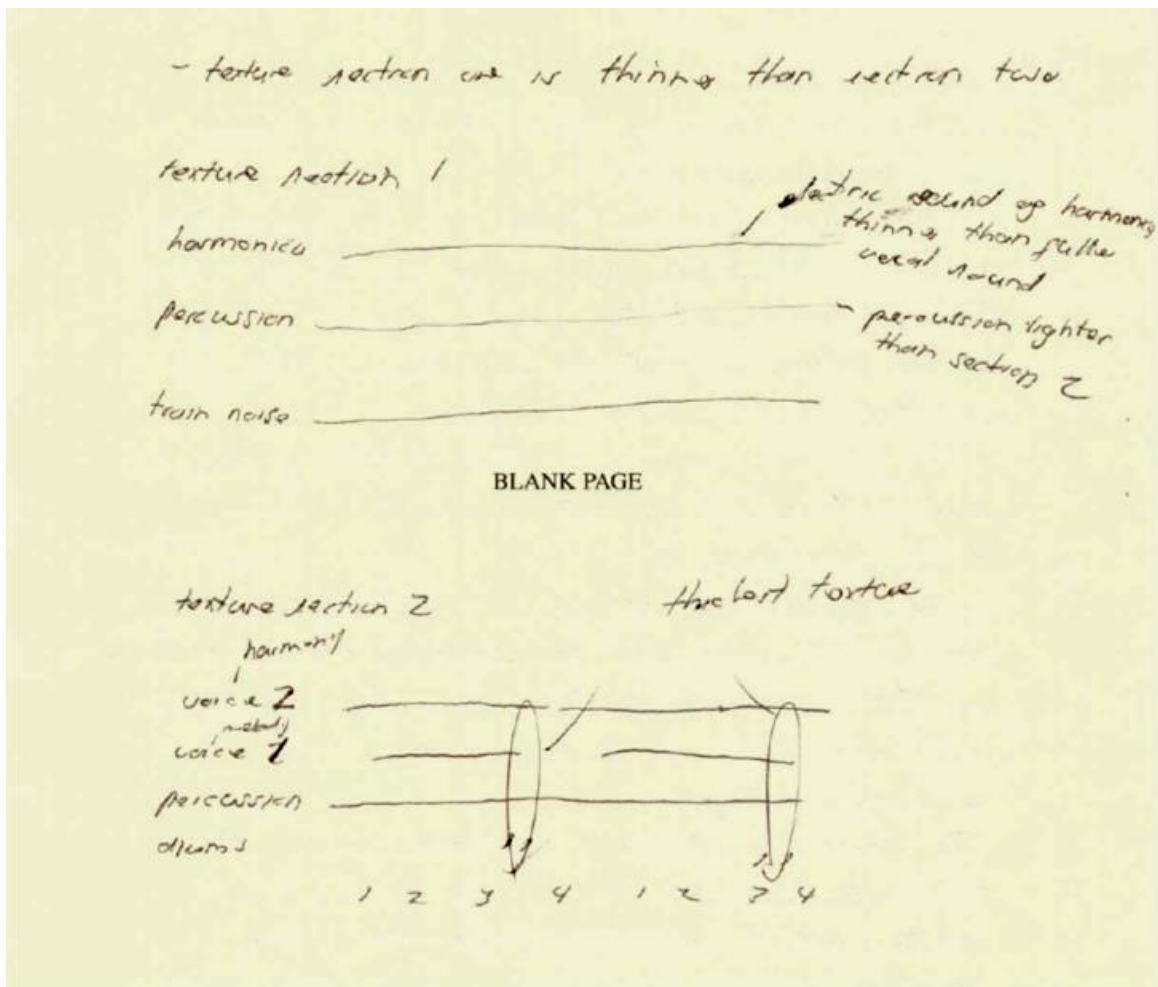 - texture section one is thinner than section two
texture section 1
harmonica
electric sound of harmonica
thinner than fuller
vocal sound
percussion
- percussion lighter
than section 2
train noise
BLANK PAGE
texture section 2
thickest texture
harmony
voice 2
melody
voice 1
percussion
drums
1 2 3 4 1 2 3 4